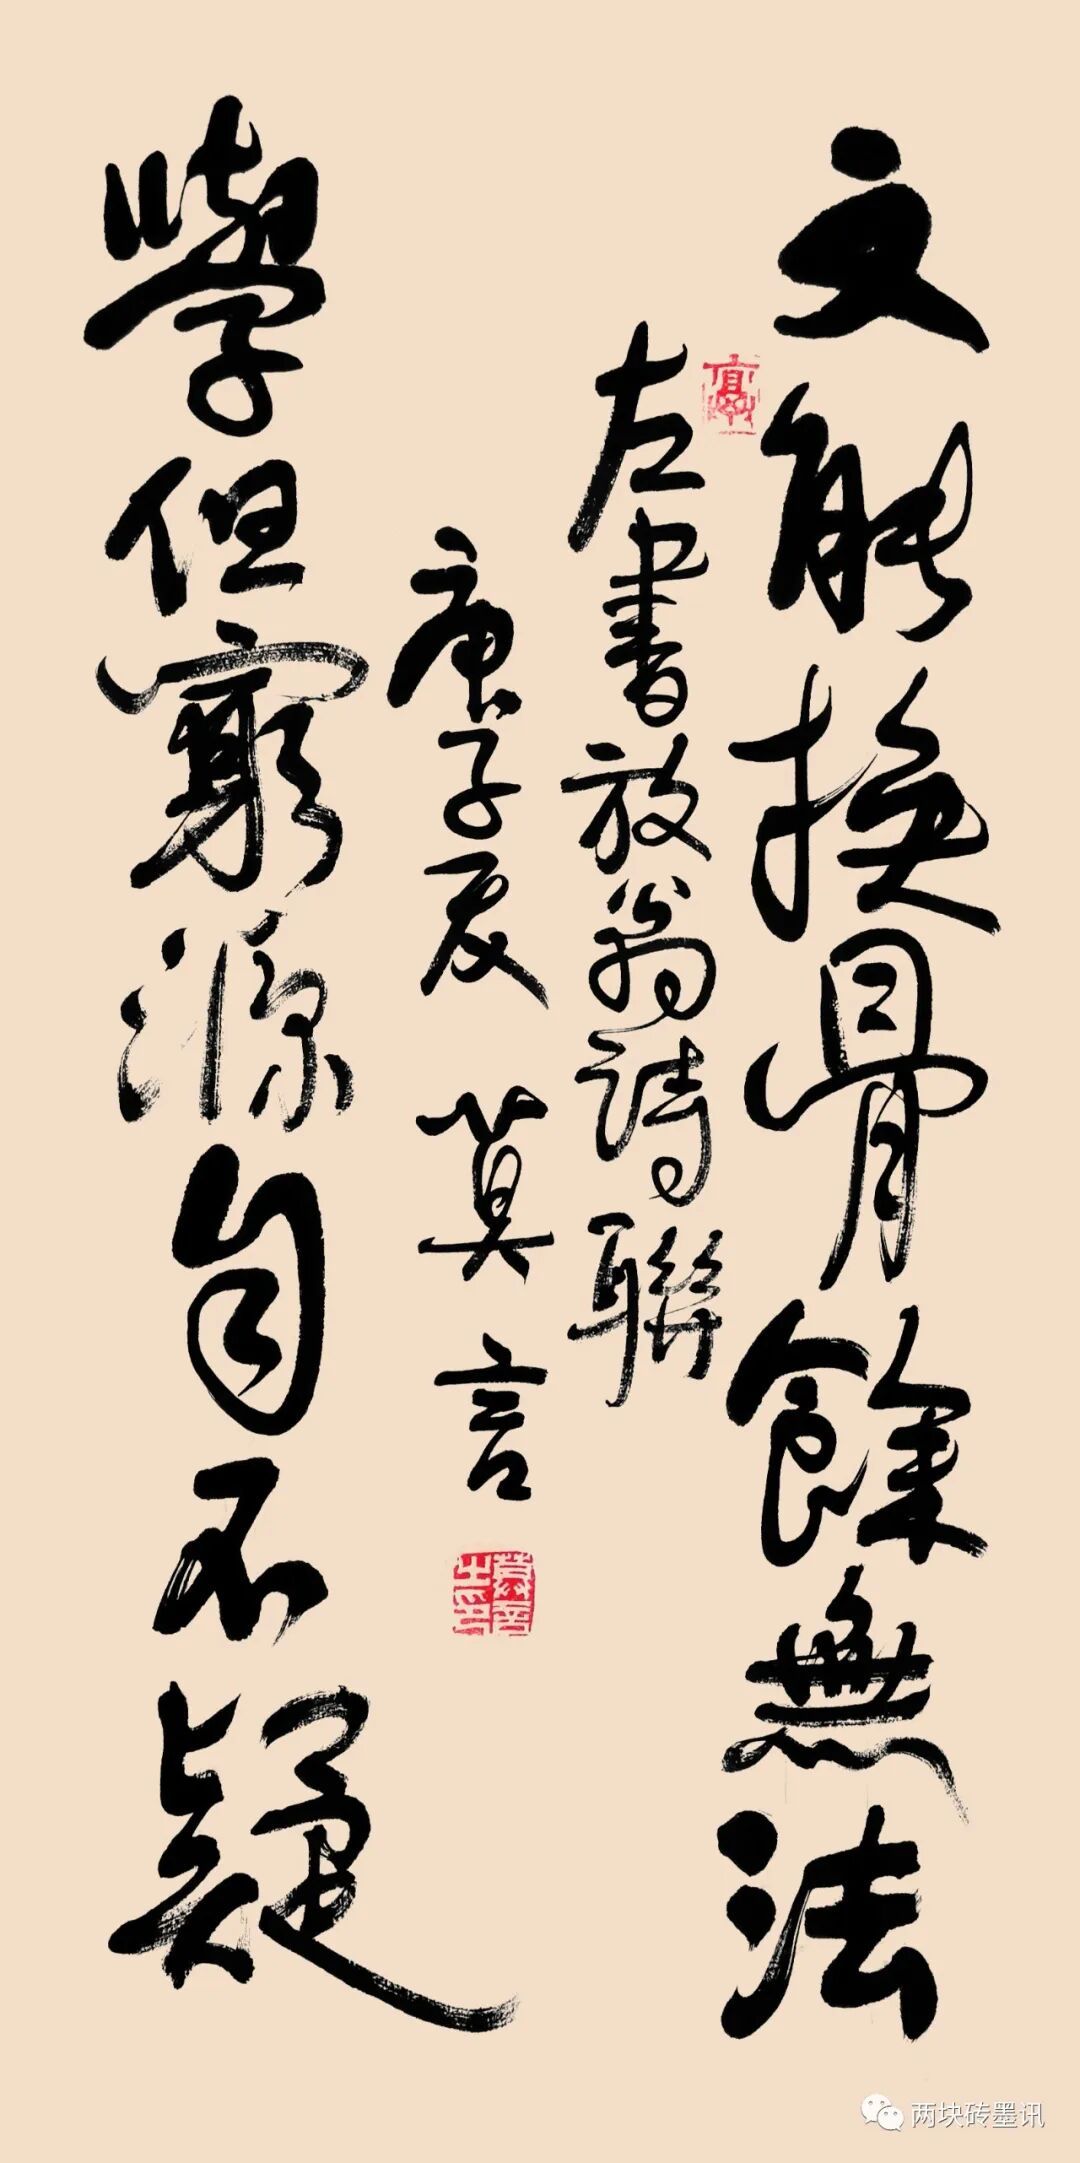 文能換骨餘無法
左書放翁詩聯
庚子夏 莫言
莫言之印
學但窮源自不疑
两块砖墨讯